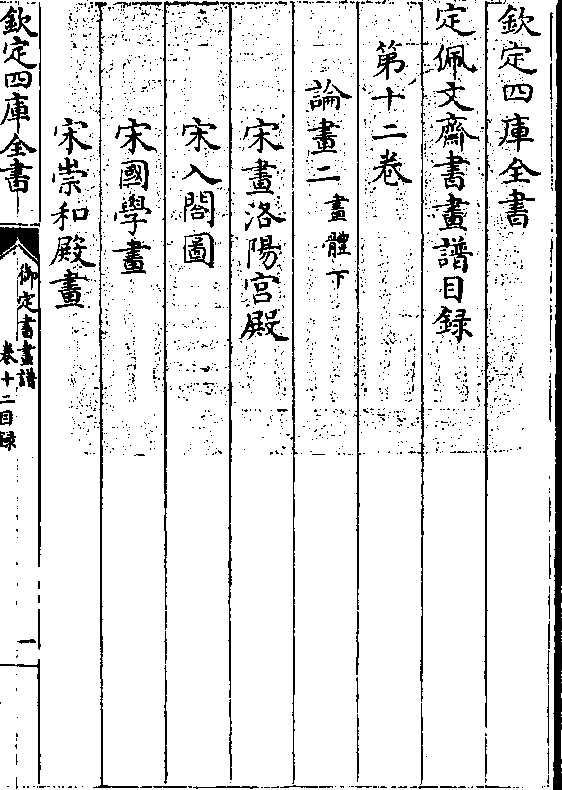 欽定四庫全書
定佩文齋書畫譜目録
第十二卷
論畫二畫體下
宋畫洛陽宮殿
宋入閣圖
宋國學畫
宋崇和殿畫
欽定四庫全書
御定書畫譜
卷十二目録
一